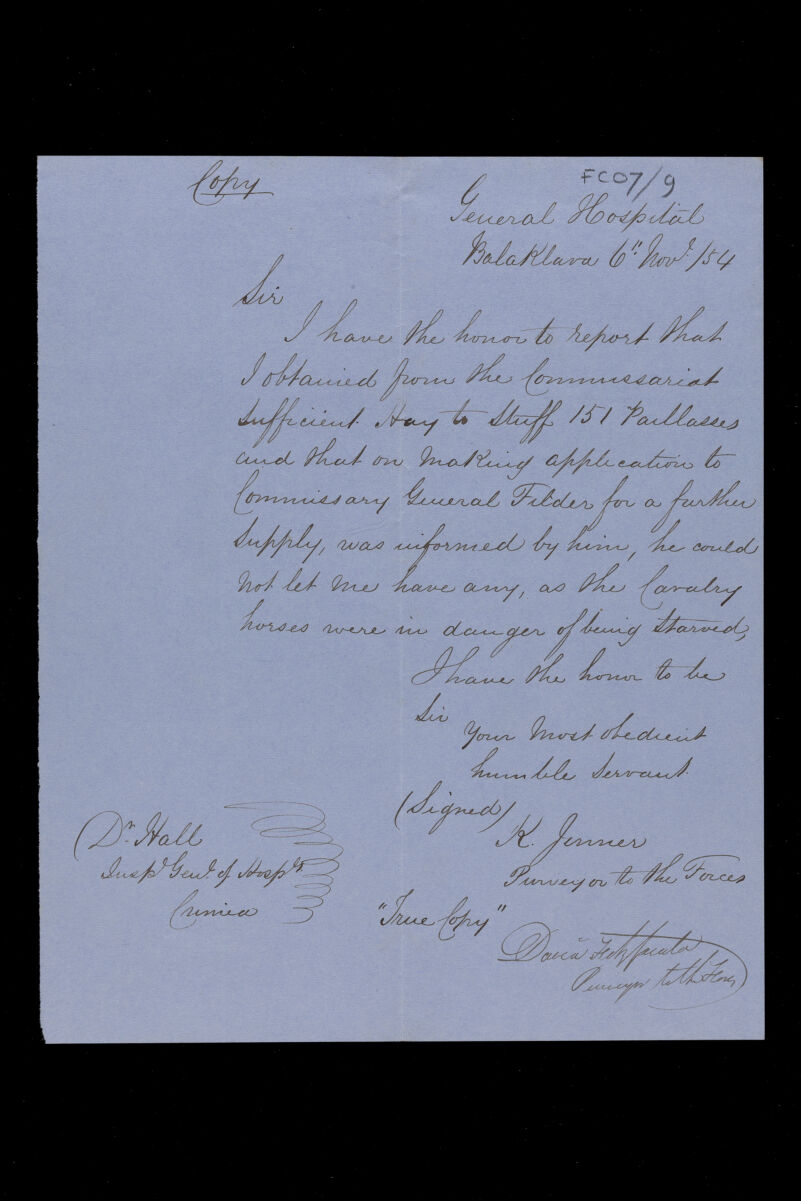 Copy
FC07/9
General Hospital
Balaklava 6" Novr. /54
Sir
I have the honor to report that
I obtained from the Commissariat
sufficient Hay to Stuff 151 Paillasses
and that on making application to
Commissary General Filder for a further
supply, was informed by him, he could
not let me have any, as the Cavalry
horses were in danger of being starved,
I have the honor to be
Sir
Your most obedient
humble servant
(Signed)
K. Jenner
Purveyor to the Forces
Dr. Hall
Inspr. Genl. of Hospls
Crimea
"True Copy"
David
Purveyor to the Forces